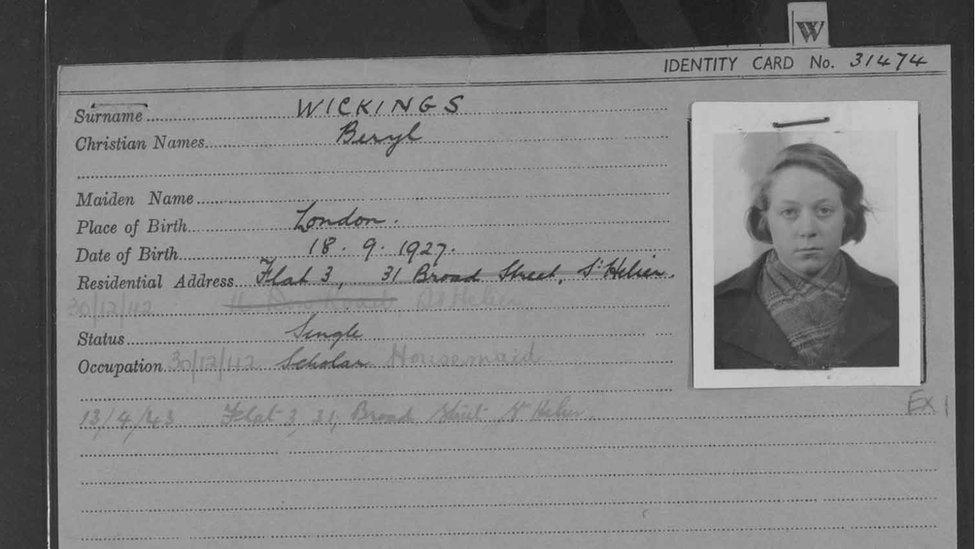 W
IDENTITY CARD No. 31474
Surname WICKINGS
Christian Names Beryl
Maiden Name
Place of Birth London.
Date of Birth 18.9.1927.
Residential Address Flat 3, 31 Broad Street, St Helier.
30/12/42 Road, St Helier
Status Single
Occupation 30/12/42 Scholar Housemaid
13/4/43 Flat 3, 31, Broad Street, St Helier.
EX 1